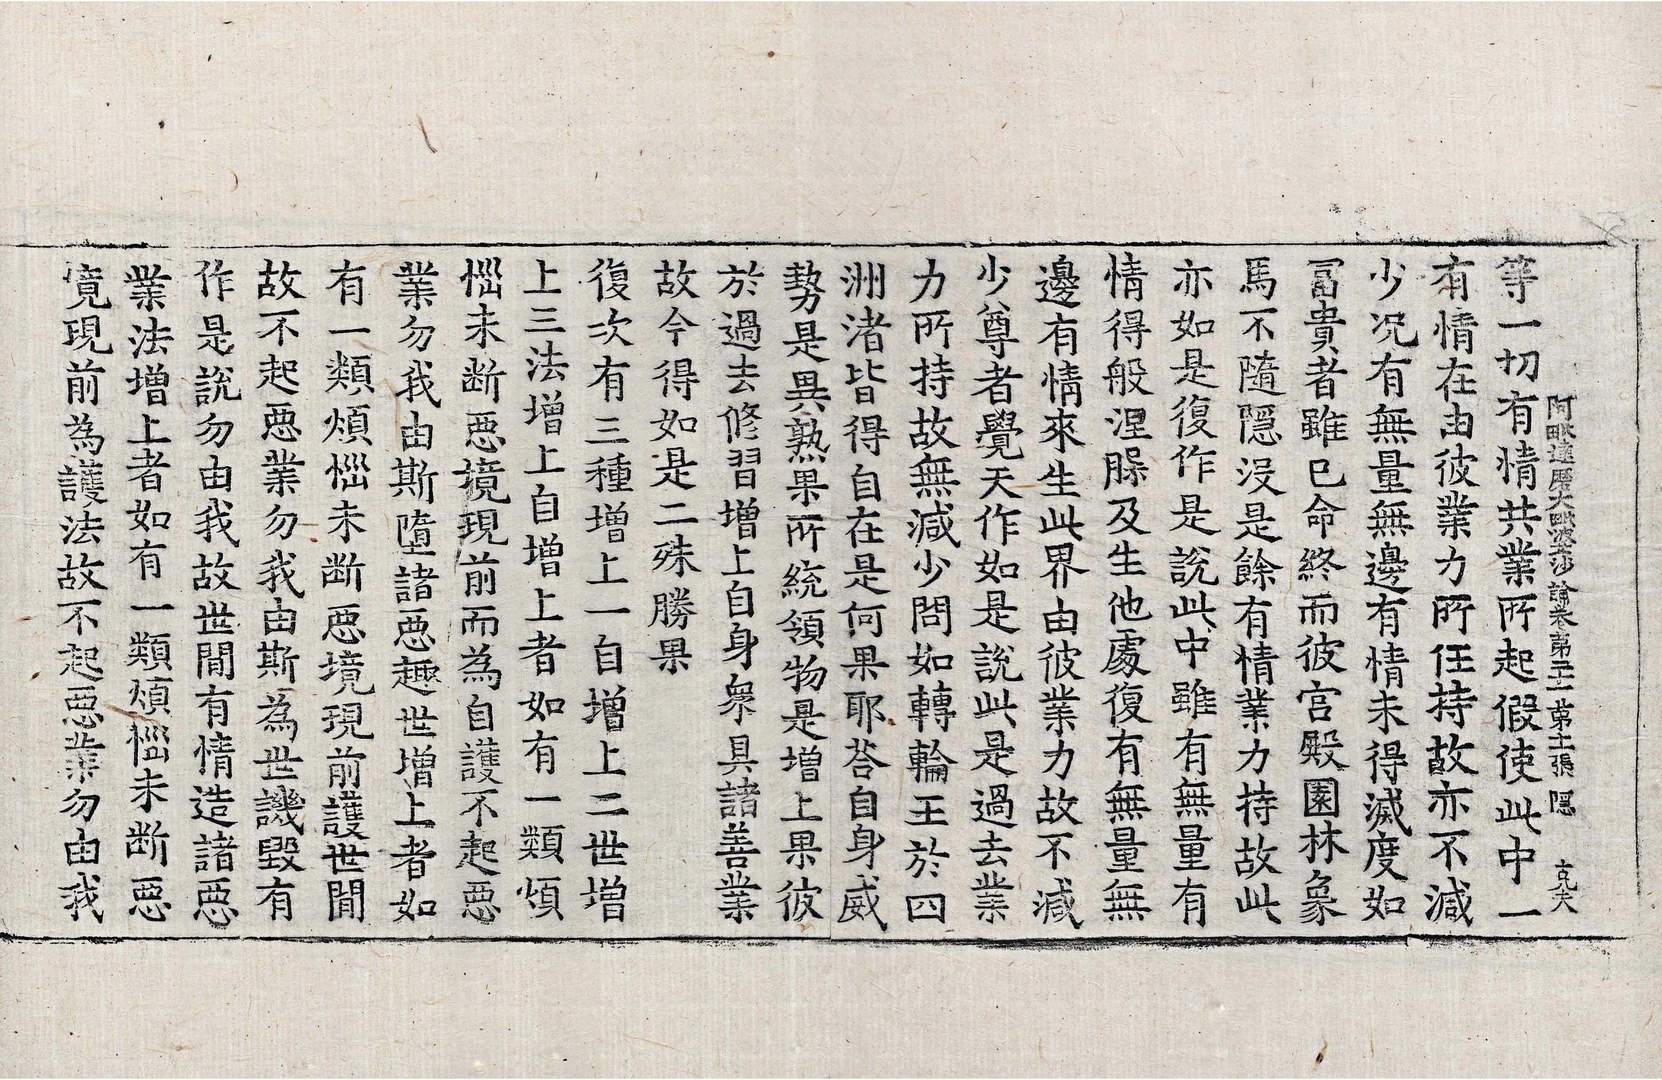 阿毗達磨大毗婆沙論卷第二十一 第十二張 隱 克夫
等一切有情共業所起假使此中一
有情在由彼業力所任持故亦不減
少况有無量無邊有情未得滅度如
冨貴者雖已命終而彼宫殿園林象
馬不隨隱没是餘有情業力持故此
亦如是復作是說此中雖有無量有
情得般涅槃及生他處復有無量無
邊有情來生此界由彼業力故不減
少尊者覺天作如是說此是過去業
力所持故無減少問如轉輪王於四
洲渚皆得自在是何果耶荅自身威
勢是異熟果所統領物是增上果彼
於過去修習增上自身衆具諸善業
故今得如是二殊勝果
復次有三種增上一自增上二世增
上三法增上自增上者如有一類煩
惱未断惡境現前而為自護不起惡
業勿我由斯墮諸惡趣世增上者如
有一類煩惱未断惡境現前護世間
故不起惡業勿我由斯為世譏毀有
作是說勿由我故世間有情造諸惡
業法增上者如有一類煩惱未断惡
境現前為護法故不起惡業勿由我